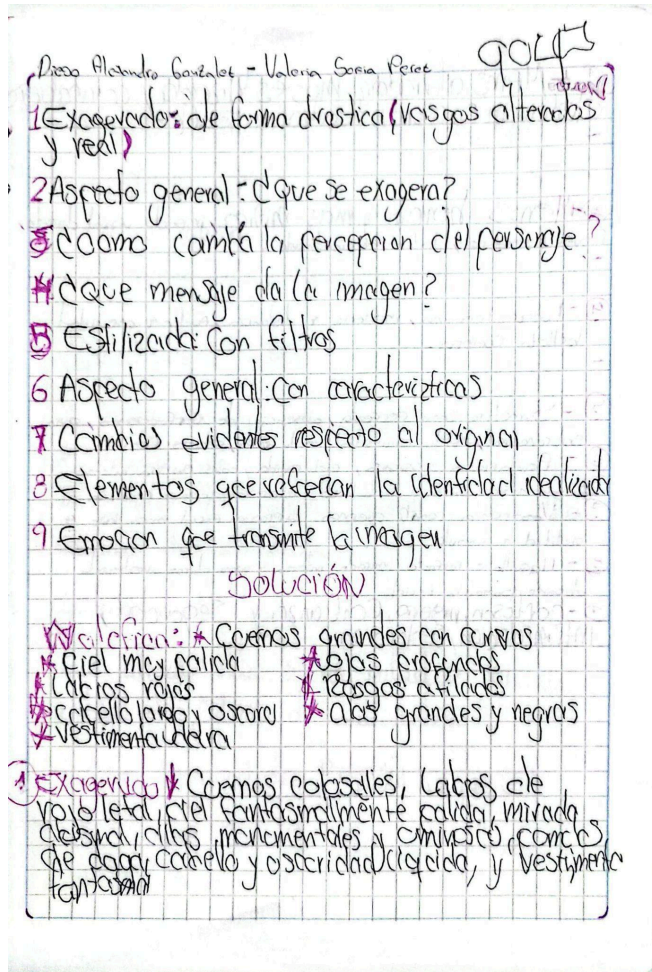 Diego Alejandro Gonzalez - Valeria Soria Perez
1 Exagerado: de forma drastica (rasgos alterados
y real)
2 Aspecto general: ¿Que se exagera?
3 ¿Como cambia la percepcion del personaje?
4 ¿Que mensaje da la imagen?
5 Estilizada: Con filtros
6 Aspecto general: Con caracterizticas
7 Cambios evidentes respecto al original
8 Elementos que refuerzan la identidad idealizada
9 Emocion que transmite la imagen
SOLUCIÓN
Malefica: * Cuernos grandes con curvas
* Piel muy palida * ojos profundos
* Labios rojos * Rasgos afilados
* cabello largo y oscuro * alas grandes y negras
* vestimenta
1 Exagerado Cuernos colosales, Labios de
rojo letal, piel fantasmalmente palida, mirada
abismal, alas monumentales y ominosas,
de daga, cabello y oscuridad liquida, y vestimenta
fantasmal